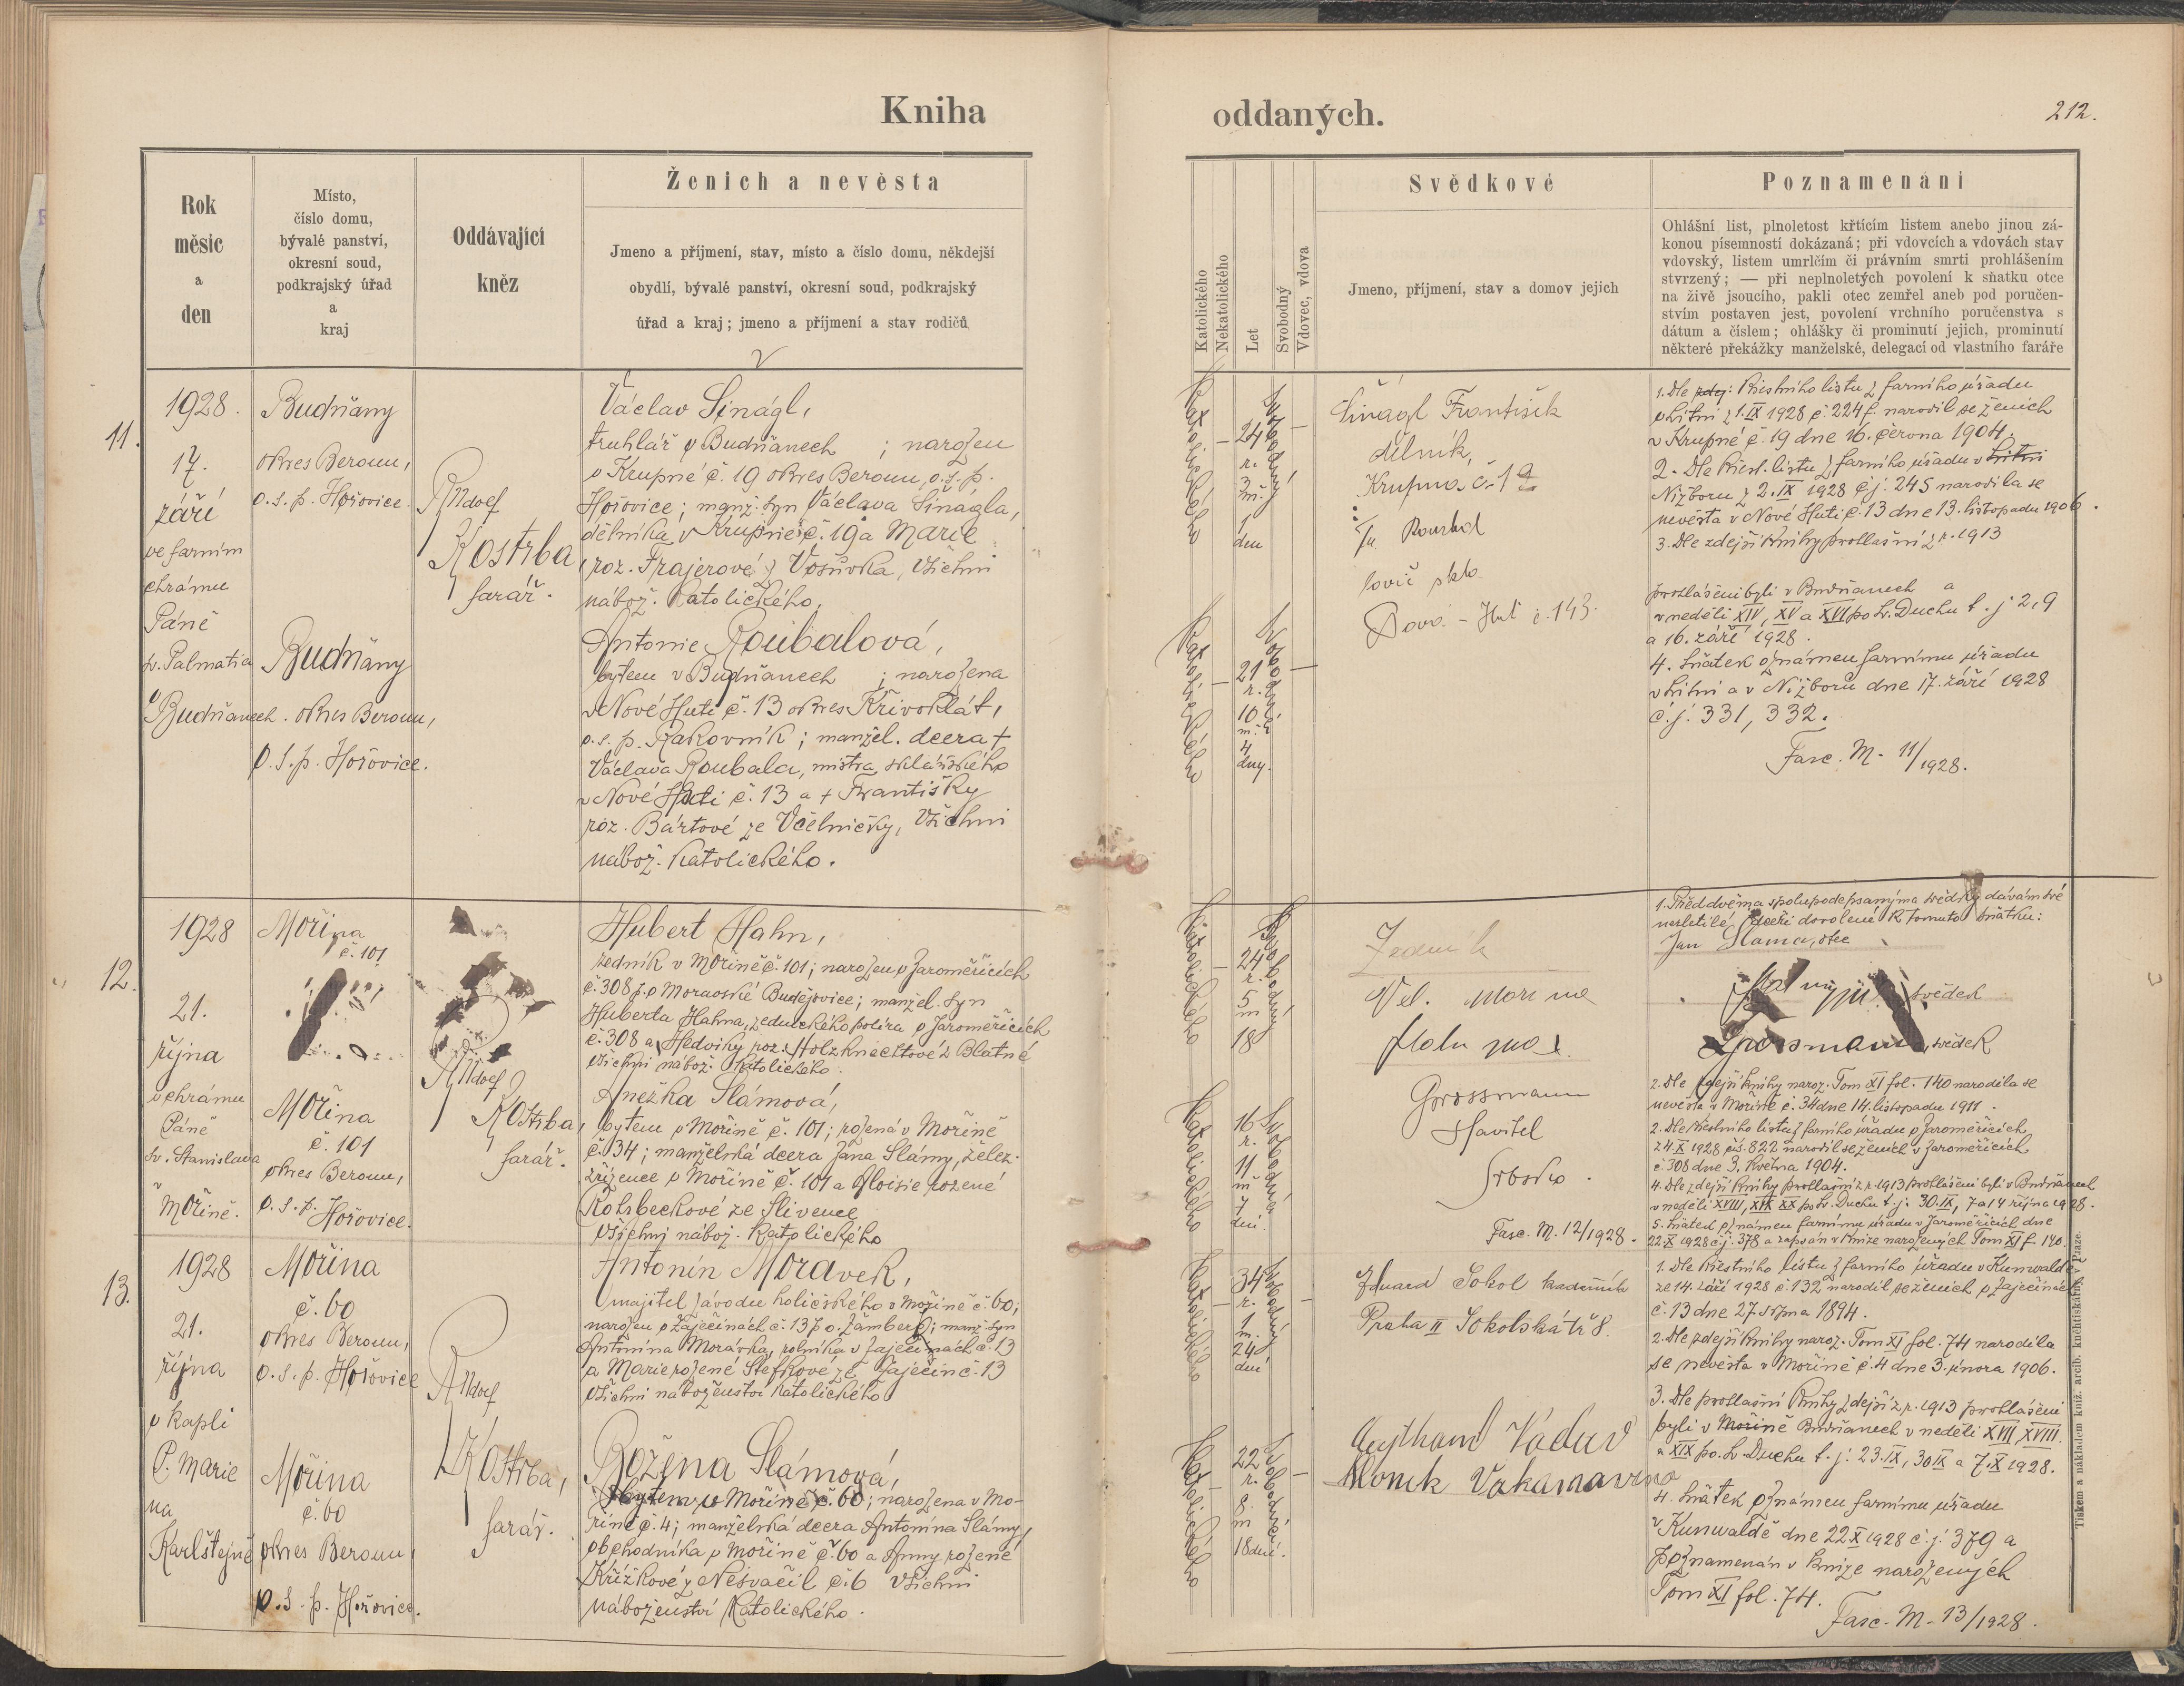 Kniha
oddaných.
212.
Rok
měsíc
a
den
Místo,
číslo domu,
bývalé panství,
okresní soud,
podkrajský úřad
a
kraj
Oddávající
kněz
Ženich a nevěsta
Jmeno a příjmení, stav, místo a číslo domu, někdejší
obydlí, bývalé panství, okresní soud, podkrajský
úřad a kraj; jmeno a příjmení a stav rodičů
Katolického
Nekatolického
Let
Svobodný
Vdovec, vdova
Svědkové
Jmeno, příjmení, stav a domov jejich
Poznamenání
Ohlášní list, plnoletost křtícím listem anebo jinou zá-
konou písemností dokázaná; při vdovcích a vdovách stav
vdovský, listem umrlčím či právním smrti prohlášením
stvrzený; — při neplnoletých povolení k sňatku otce
na živě jsoucího, pakli otec zemřel aneb pod poručen-
stvím postaven jest, povolení vrchního poručenstva s
dátum a číslem; ohlášky či prominutí jejich, prominutí
některé překážky manželské, delegací od vlastního faráře
11.
1928.
17.
září
ve farním
chrámu
Páně
sv. Palmatia
v
Budňanech.
Budňany
okres Beroun,
o.s.p. Hořovice.
Budňany
okres Beroun,
o.s.p. Hořovice.
Rudolf
Kostrba,
farář.
Václav Šinágl,
truhlář v Budňanech ; narozen
v Krupné č. 19 okres Beroun, o.s.p.
Hořovice; manž. syn Václava Šinágla,
dělníka v Krupné č. 19 a Marie
roz. Frajerové z Vosůvka, všichni
nábož. katolického.
Antonie Roubalová,
bytem v Budňanech ; narozena
v Nové Huti č. 13 okres Křivoklát,
o.s.p. Rakovník; manžel. dcera †
Václava Roubala, mistra sklářského
v Nové Huti č. 13 a † Františky
roz. Bártové ze Včelničky, všichni
nábož. katolického.
Katolického
24 r. 3 m. 1 den
Svobodný
Katolického
21 r. 10 m. 4 dny.
Svobodná
Šinágl František
dělník,
Krupná č. 19
Fr. Roubal
Nová-Huť č. 143.
1. Dle zdej: křestního listu z farního úřadu
v Litni z 1.IX 1928 č. 224 f. narodil se ženich
v Krupné č. 19 dne 16. června 1904.
2. Dle křest. listu z farního úřadu v Litni
Nižboru z 2.IX 1928 čj. 245 narodila se
nevěsta v Nové Huti č. 13 dne 13. listopadu 1906.
3. Dle zdejší knihy prohlašní z r. 1913
prohlášeni byli v Budňanech a
v neděli XIV, XV a XVI po sv. Duchu t.j. 2, 9
a 16. září 1928.
4. Sňatek oznámen farnímu úřadu
v Litni a v Nižboru dne 17. září 1928
č.j. 331, 332.
Fasc. M- 11/1928.
12.
1928
21.
října
v chrámu
Páně
sv. Stanislava
v
Mořině.
Mořina
č. 101
Mořina
č. 101
okres Beroun,
o.s.p. Hořovice.
Rudolf
Kostrba,
farář.
Hubert Hahn,
zedník v Mořině č. 101; narozen v Jaroměřicích
č. 308 p. o Moravské Budějovice; manžel. syn
Huberta Hahna, zednického políra v Jaroměřicích
č. 308 a Hedviky roz. Holzknechtové z Blatné
všichni nábož. katolického.
Anežka Slámová,
bytem v Mořině č. 101; rozená v Mořině
č. 34; manželská dcera Jana Slámy, želez.
zřízence v Mořině č. 101 a Aloisie rozené
Kohsbeckové ze Slivence
všichni nábož. katolického
Katolického
24 r. 5 m 18
Svobodný
Katolického
16 r. 11 m 7 dní.
Svobodná
Vel. Mořina
Grossmann
stavitel
Srbsko.
Fasc. M. 12/1928.
1. Před dvěma spolupodepsanýma svědky dávám své
nezletilé dceři dovolení k tomuto sňatku:
Jan Slama, otec
svědek
Grossmann, svědek
2. Dle zdejší knihy naroz. Tom XI fol. 140 narodila se
nevěsta v Mořině č. 34 dne 14. listopadu 1911.
2. Dle křestního listu z farního úřadu v Jaroměřicích
z 4.X 1928 čís. 822 narodil se ženich v Jaroměřicích
č. 308 dne 3. května 1904.
4. Dle zdejší knihy prohlašní z r. 1913 prohlášeni byli v Budňanech
v neděli XVIII, XIX XX po sv. Duchu t.j. 30.IX, 7 a 14 října 1928.
5. Sňatek oznámen farnímu úřadu v Jaroměřicích dne
22.X 1928 č.j. 378 a zapsán v knize narozených Tom XI f. 140.
13.
1928
21.
října
v kapli
P. Marie
na
Karlštejně
Mořina
č. 60
okres Beroun,
o.s.p. Hořovice
Mořina
č. 60
okres Beroun,
o.s.p. Hořovice.
Rudolf
Kostrba,
farář.
Antonín Moravek,
majitel závodu holičského v Mořině č. 60;
narozen v Zaječinách č. 13 p. o. Žamberg; manž. syn
Antonína Morávka, rolníka v Zaječinách č. 13
a Marie rozené Štefkové ze Zaječin č. 13
všichni náboženství katolického
Božena Slámová,
bytem v Mořině č. 60; narozena v Mo-
řině č. 4; manželská dcera Antonína Slámy,
obchodníka v Mořině č. 60 a Anny rozené
Křížkové z Nesvačil č. 6 všichni
náboženství katolického.
Katolického
34 r. 1 m. 24 dní
Svobodný
Katolického
22 r. 8. m 18 dní.
Svobodná
Eduard Sokol kadeřník
Praha II Sokolská tř 8.
1. Dle křestního listu z farního úřadu v Kunwaldě
ze 14. září 1928 č. 132 narodil se ženich v Zaječinách
č. 13 dne 27. srpna 1894.
2. Dle zdejší knihy naroz. Tom XI fol. 74 narodila
se nevěsta v Mořině č. 4 dne 3. února 1906.
3. Dle prohlašní knihy zdejší z r. 1913 prohlášeni
byli v Mořině Budňanech v neděli XVII XVIII.
a XIX po sv. Duchu t.j. 23.IX, 30 IX a 7.X 1928.
4. Sňatek oznámen farnímu úřadu
v Kunwaldě dne 22 X 1928 č.j. 379 a
poznamenán v knize narozených
Tom XI fol. 74.
Fasc. M- 13/1928.
Tiskem a nákladem kníž. arcib. knihtiskárny v Praze.